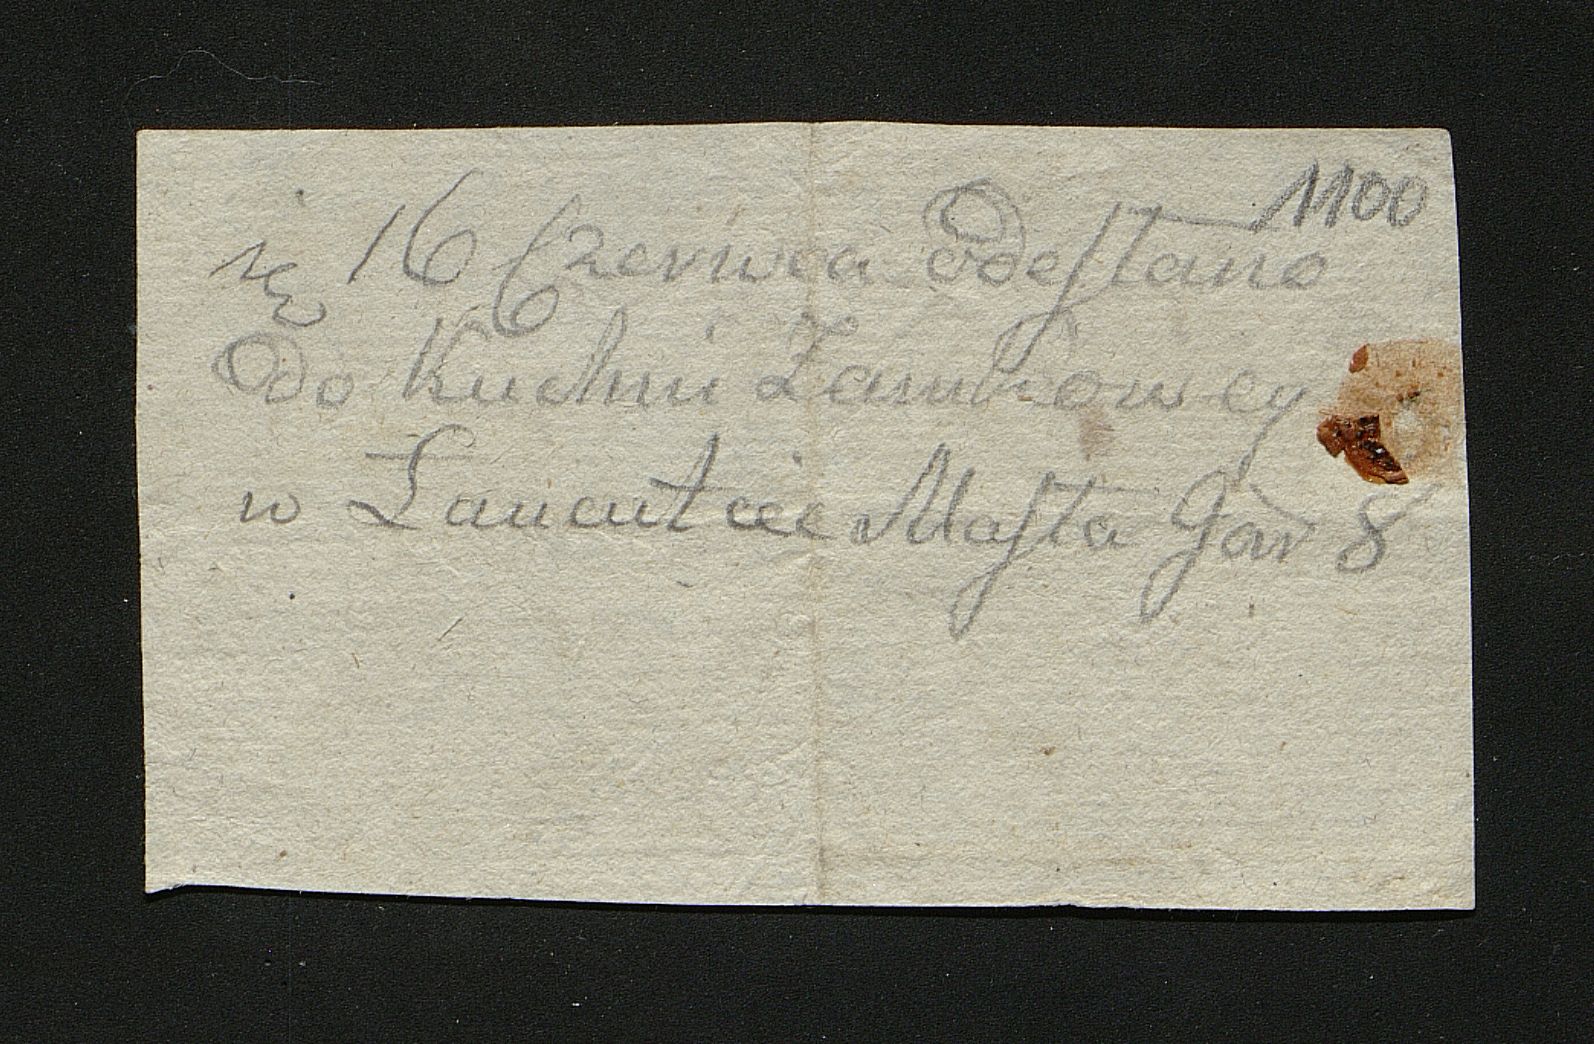 1100
16 Czerwca odesłano
do Kuchni Zamkowey
w Łancutcie Masła Gar 8